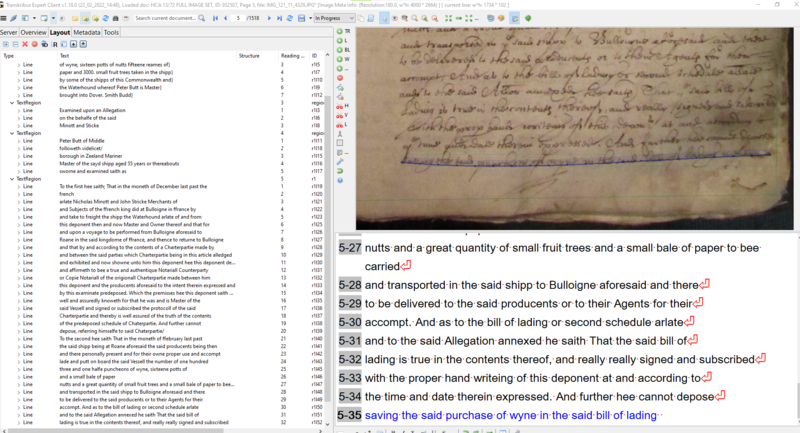 Transkribus Expert Client v1.18.0 (22_02_2022_14:40), Loaded doc: HCA 13/72 FULL IMAGE SET, ID: 932507, Page 5, file: IMG_121_11_4329.JPG* [Image Meta-Info: (Resolution:180.0, w*h: 4000 * 2664) ] | current line: w*h: 1734 * 102 ]
Search current document...
5 /1518
In Progress
Server Overview Layout Metadata Tools
Type Text Structure Reading ... ID
Line of wyne, sixteen potts of nutts fifteene reames of) 3 r1l5
Line paper and 3000. small fruit trees taken in the shipp) 4 r1l7
Line by some of the shipps of this Commonwealth and) 5 r1l16
Line the Waterhound whereof Peter Butt is Master) 6 r1l9
Line brought into Dover. Smith Budd) 7 r1l112
TextRegion 3 region
Line Examined upon an Allegation 1 r1l3
Line on the behalfe of the said 2 r1l6
Line Minott and Sticke 3 r1l8
TextRegion 4 region
Line Peter Butt of Middle 1 r1l11
Line followeth videlicet/ 2 r1l18
Line borough in Zeeland Mariner 3 r1l15
Line Master of the sayd shipp aged 55 years or thereabouts 4 r1l16
Line sworne and examined saith as 5 r1l17
TextRegion 5 r1
Line To the first hee saith; That in the moneth of December last past the 1 r1l19
Line french 2 r1l20
Line arlate Nicholas Minott and John Stricke Merchants of 3 r1l21
Line and Subjects of the ffrench king did at Bulloigne in ffrance by 4 r1l22
Line and take to freight the shipp the Waterhound arlate of and from 5 r1l23
Line this deponent then and now Master and Owner thereof and that for 6 r1l25
Line and upon a voyage to be performed from Bulloigne aforesaid to 7 r1l26
Line Roane in the said kingdome of ffrance, and thence to returne to Bulloigne 8 r1l27
Line and that by and according to the contents of a Charterpartie made by 9 r1l28
Line and between the said parties which Charterpartie being in this article alledged 10 r1l29
Line and exhibited and now showne unto him this deponent hee this deponent de... 11 r1l30
Line and affirmeth to bee a true and authentique Notariall Counterparty 12 r1l31
Line or Copie Notariall of the origonall Charterpartie made between him 13 r1l32
Line this deponent and the producents aforesaid to the intent therein expressed and 14 r1l33
Line by this examinate predeposed. Which the premisses hee this deponent saith ... 15 r1l34
Line well and assuredly knoweth for that he was and is Master of the 16 r1l35
Line said Vessell and signed or subscribed the protocoll of the said 17 r1l36
Line Charterpartie and thereby is well assured of the truth of the contents 18 r1l37
Line of the predeposed schedule of Charterpartie. And further cannot 19 r1l38
Line depose, refering himselfe to said Charterpartie/ 20 r1l39
Line To the second hee saith That in the moneth of ffebruary last past 21 r1l40
Line the said shipp being at Roane aforesaid the said producents being then 22 r1l41
Line and there personally present and for their owne proper use and accompt 23 r1l42
Line lade and putt on board the said Vessell the number one and twenty 24 r1l43
Line three and one halfe puncheons of wyne, sixteene potts of 25 r1l44
Line and a small bale of paper 26 r1l46
Line nutts and a great quantity of small fruit trees and a small bale of paper to bee... 27 r1l47
Line and transported in the said shipp to Bulloigne aforesaid and there 28 r1l48
Line to be delivered to the said producents or to their Agents for their 29 r1l49
Line accompt. And as to the bill of lading or second schedule arlate 30 r1l50
Line and to the said Allegation annexed he saith That the said bill of 31 r1l51
Line lading is true in the contents thereof, and really really signed and subscribed 32 r1l52
5-27 nutts and a great quantity of small fruit trees and a small bale of paper to bee
carried
5-28 and transported in the said shipp to Bulloigne aforesaid and there
5-29 to be delivered to the said producents or to their Agents for their
5-30 accompt. And as to the bill of lading or second schedule arlate
5-31 and to the said Allegation annexed he saith That the said bill of
5-32 lading is true in the contents thereof, and really really signed and subscribed
5-33 with the proper hand writeing of this deponent at and according to
5-34 the time and date therein expressed. And further hee cannot depose
5-35 saving the said purchase of wyne in the said bill of lading